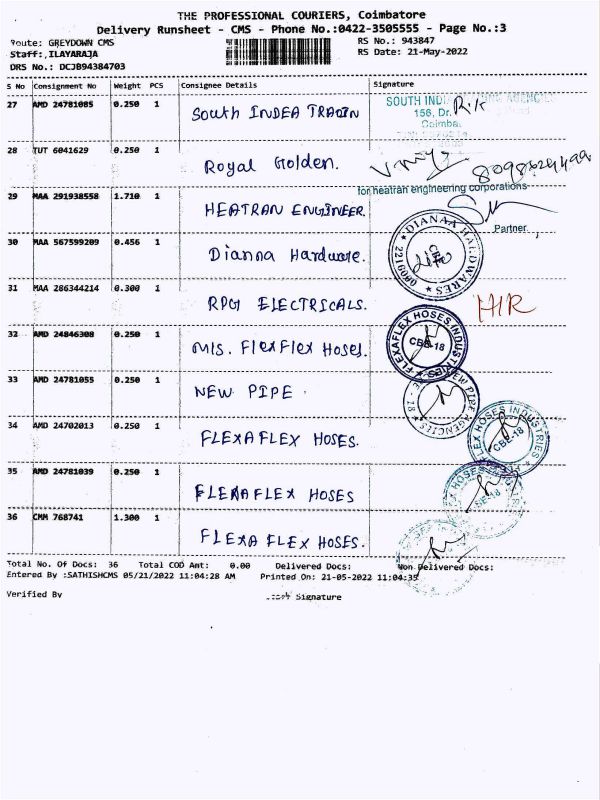 THE PROFESSIONAL COURIERS, Coimbatore
Delivery Runsheet - CMS - Phone No.:0422-3505555 - Page No.:3
Route: GREYDOWN CMS
RS No.: 943847
Staff: ,ILAYARAJA
RS Date: 21-May-2022
DRS No.: DCJB94384703
S No Consignment No Weight PCS Consignee Details Signature
27 AMD 24781085 0.250 1 South INDEA TRADIN
SOUTH INDI
156, Dr.
Coimba
28 TUT 6041629 0.250 1 Royal Golden.
for heatran engineering corporations
29 MAA 291938558 1.710 1 HEATRAN ENGINEER.
Partner.
30 MAA 567599209 0.456 1 Dianna Hardware.
DIANAA HARDWARES
31 MAA 286344214 0.300 1 RPG ELECTRICALS.
HR
32 AMD 24846308 0.250 1 M/S. FlexFlex Hoses.
FLEXAFLEX HOSES INDUSTRIES
CBE-18
33 AMD 24781055 0.250 1 NEW PIPE
NEW PIPE AGENCIES
34 AMD 24702013 0.250 1 FLEXA FLEX HOSES.
FLEX HOSES INDUSTRIES
CBE-18
35 AMD 24781039 0.250 1 FLEXAFLEX HOSES
36 CMM 768741 1.300 1 FLEXA FLEX HOSES.
Total No. Of Docs: 36 Total COD Amt: 0.00 Delivered Docs: Non Delivered Docs:
Entered By :SATHISHCMS 05/21/2022 11:04:28 AM Printed On: 21-05-2022 11:04:35
Verified By Signature